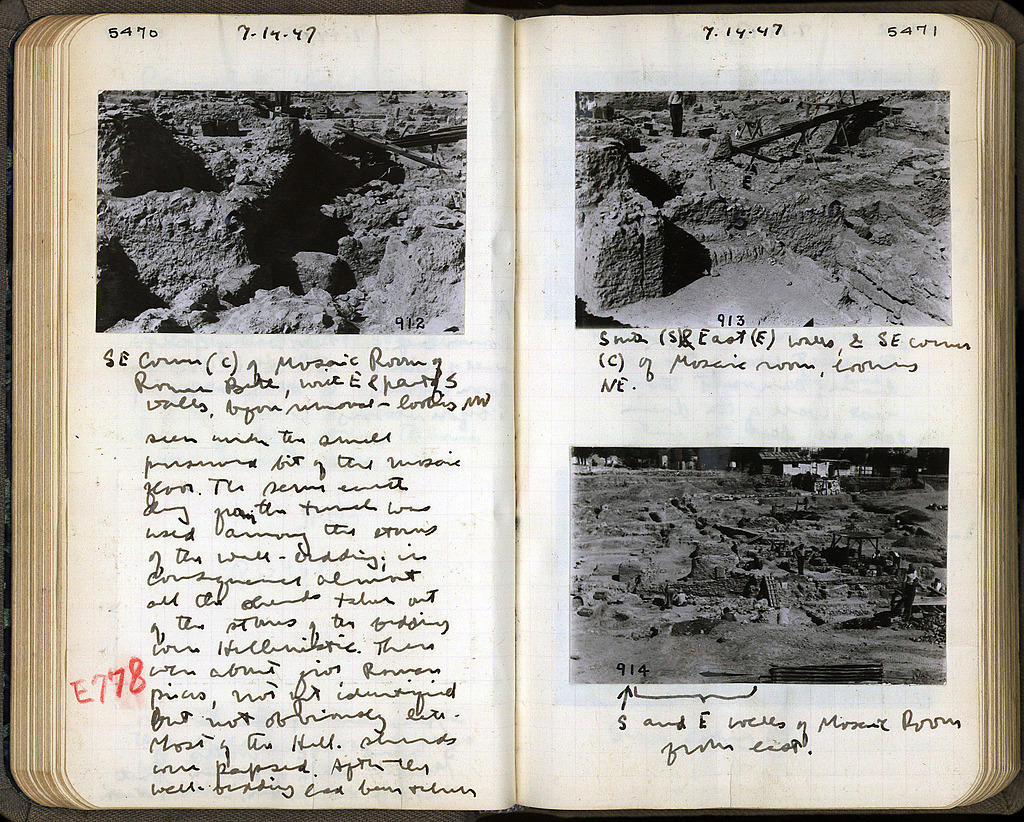 5470 7-14-47
912
SE Corner (C) of Mosaic Room of
Roman Bldg, with E & part of S
walls, before removal - looking NW
seen under the small
preserved bit of the mosaic
floor. The same earth
dug from the trench was
used among the stones
of the wall-bedding; in
consequence almost
all the sherds taken out
of the stones of the bedding
were Hellenistic. There
were about five Roman
E778
pieces, not yet identified
but not obviously late.
Most of the Hell. sherds
were papsed. After the
wall-bedding had been taken
7-14-47 5471
E
913
South (S) & East (E) walls, & SE corner
(C) of Mosaic room, looking
NE.
914
S and E walls of Mosaic Room
from east.